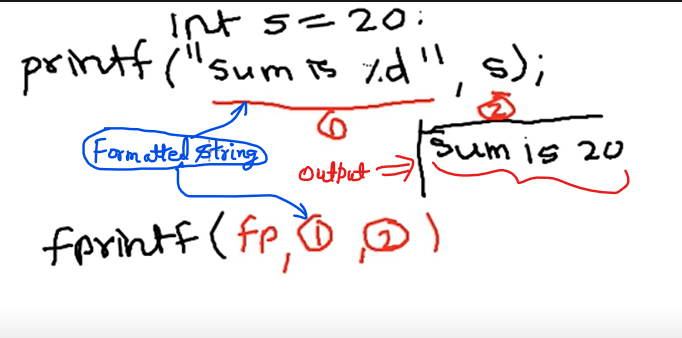 int s = 20:
printf ("sum is %d", s);
① ②
Formatted String
output ⇒ Sum is 20
fprintf ( fp, ① , ② )